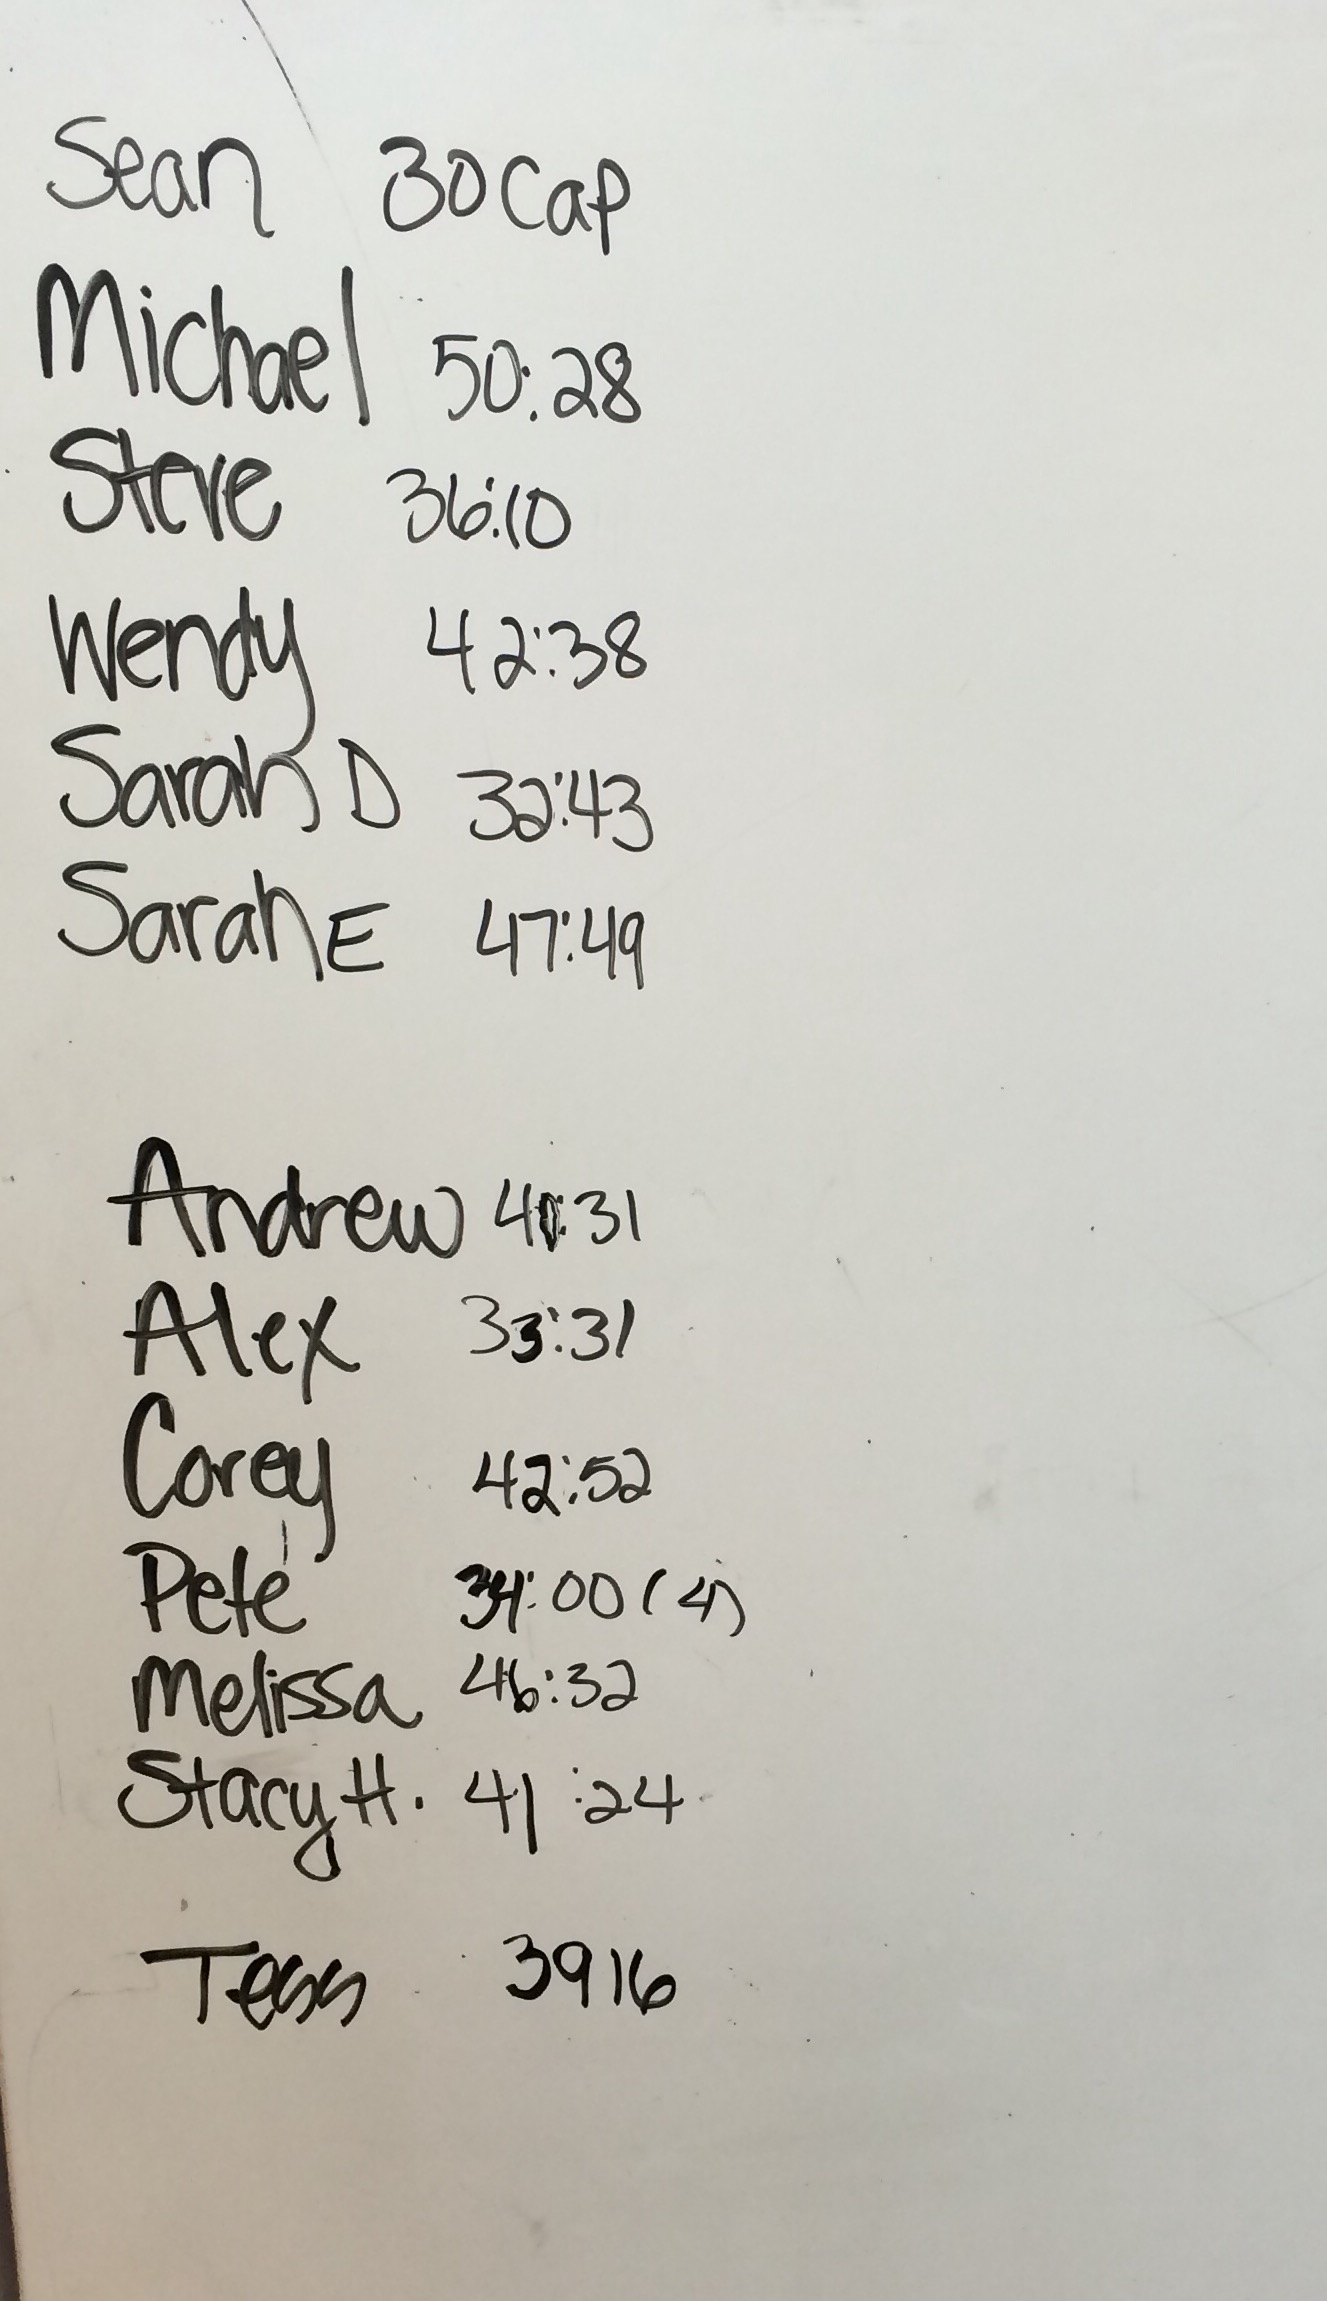 Sean 30 Cap
Michael 50:28
Steve 36:10
Wendy 42:38
Sarah D 32:43
Sarah E 47:49
Andrew 41:31
Alex 33:31
Corey 42:52
Pete 34:00 (4)
Melissa 46:32
Stacy H. 41:24
Tess 3916